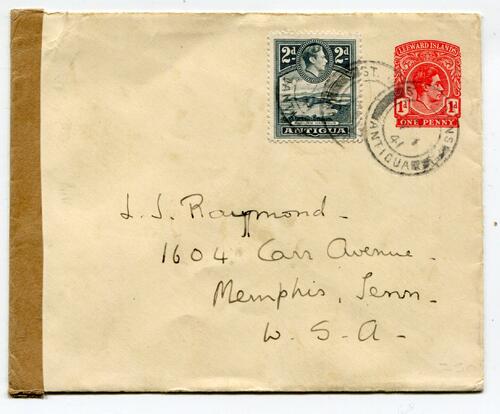 2d 2d
ANTIGUA
LEEWARD ISLANDS
1d 1d
ONE PENNY
ST.
ANTIGUA
41
L. J. Raymond -
1604 Carr Avenue -
Memphis, Tenn -
U. S. A -